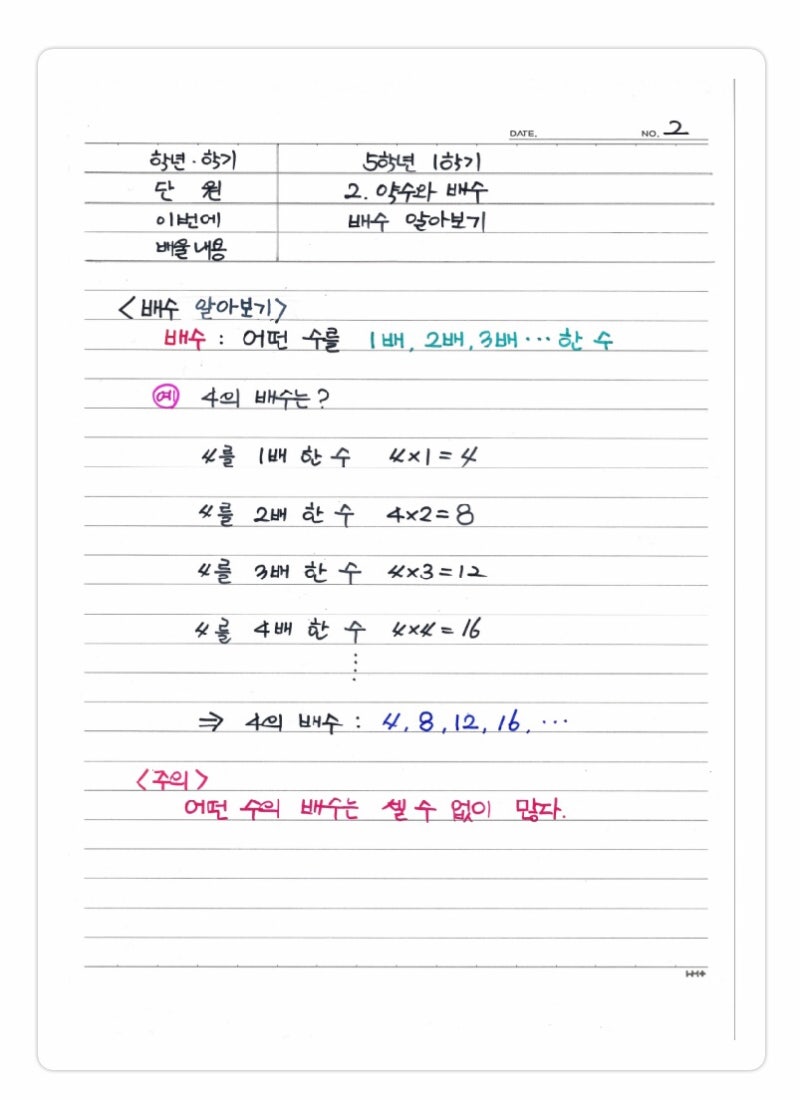 DATE. NO. 2
학년·학기 5학년 1학기
단 원 2. 약수와 배수
이번에 배수 알아보기
배울내용
<배수 알아보기>
배수 : 어떤 수를 1배, 2배, 3배… 한 수
예 4의 배수는?
4를 1배 한 수 4×1=4
4를 2배 한 수 4×2=8
4를 3배 한 수 4×3=12
4를 4배 한 수 4×4=16
⋮
⇒ 4의 배수 : 4, 8, 12, 16, …
<주의>
어떤 수의 배수는 셀 수 없이 많다.